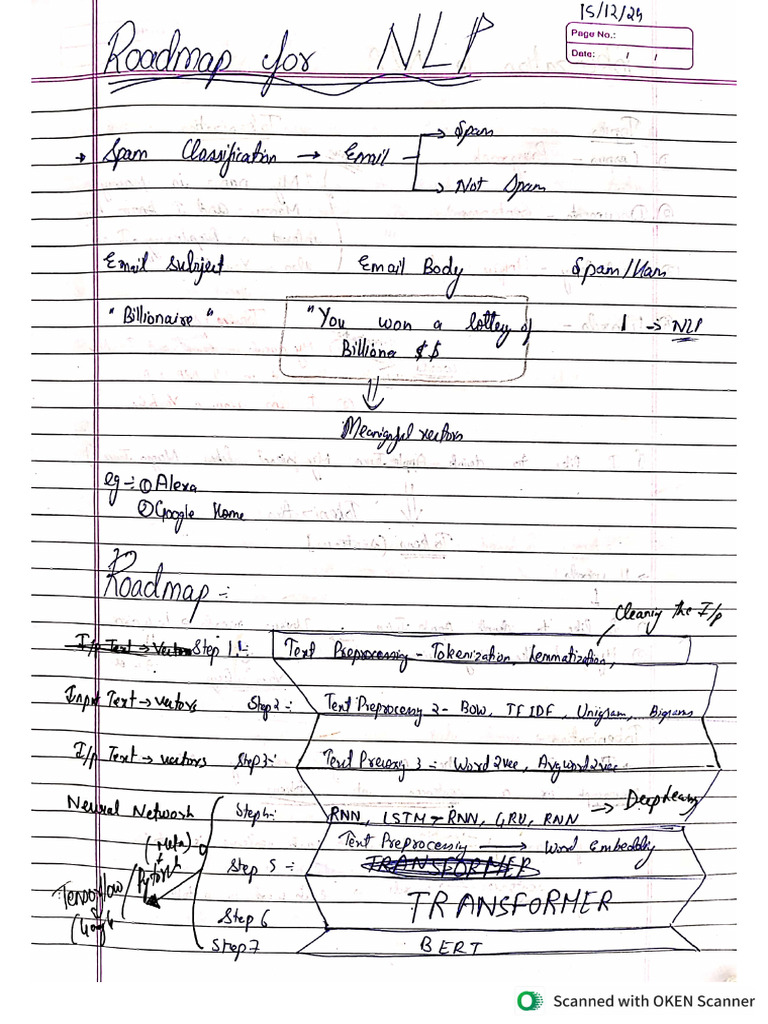 15/12/24
Page No.:
Date: / /
Roadmap for NLP
→ Spam Classification → Email → Spam
→ Not Spam
Email Subject Email Body Spam/Ham
"Billionaire" "You won a lottey of 1 → NLP
Billions $$
⇓
Meanigful vectors
eg :- ① Alexa
② Google Home
Roadmap :-
Cleaning the I/p
I/p Text → Vectors Step 1 :- Text Preprocessing - Tokenization, Lemmatization,
Input Text → vectors Step 2 :- Text Preprocessing 2 - BOW, TFIDF, Unigram, Bigrams
I/p Text → vectors Step 3 :- Text Preprocessing 3 - Word2vec, Avgword2vec
Neural Network Step 4 :- RNN, LSTM - RNN, GRU, RNN → Deeplearning
(Meta) Text Preprocessing → Word Embedding
Pytorch Step 5 :- TRANSFORMER
Tensorflow Step 6 TRANSFORMER
Step 7 BERT
Scanned with OKEN Scanner